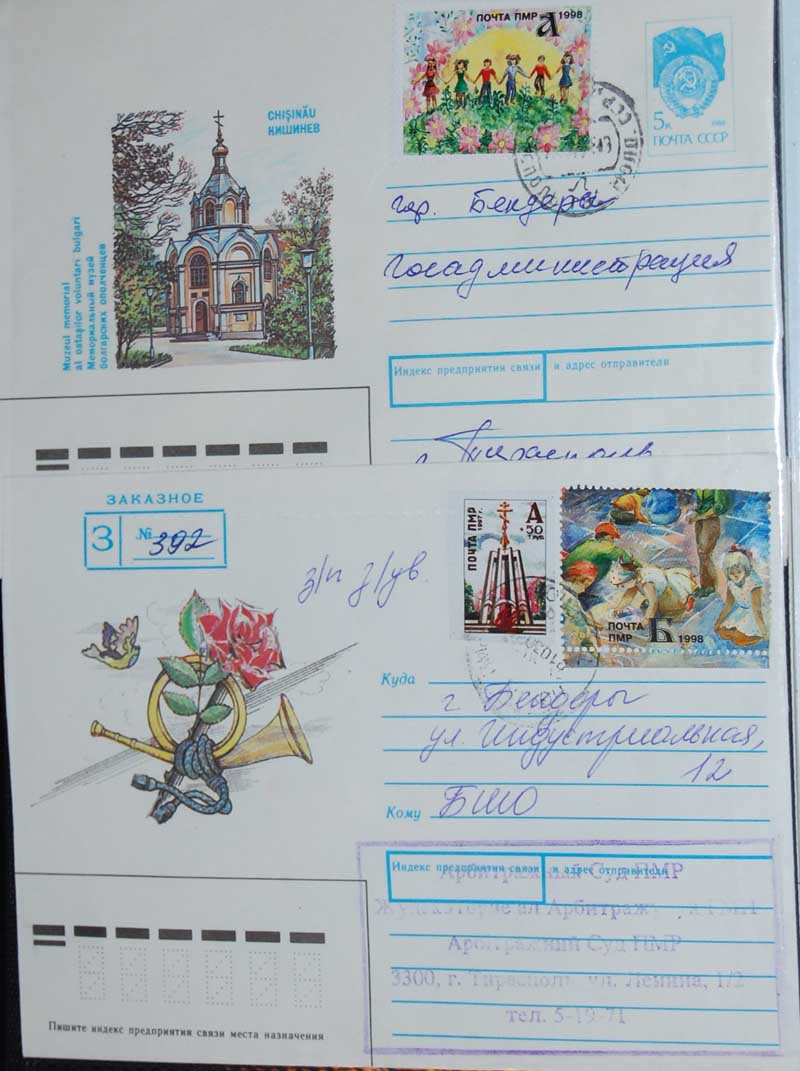 ПОЧТА ПМР А 1998
CHIŞINĂU
КИШИНЕВ
5к 1988
ПОЧТА СССР
Muzeul memorial
al ostaşilor voluntari bulgari
Мемориальный музей
болгарских ополченцев
гор. Бендеры
Госадминистрация
Индекс предприятия связи и адрес отправителя
г. Тирасполь
ЗАКАЗНОЕ
З № 392
з/п з/ув.
ПОЧТА ПМР 1997 г.
А
+50
ТРУБ.
ПОЧТА
ПМР Б 1998
Куда
г. Бендеры
ул. Индустриальная,
12
Кому БШО
Индекс предприятия связи и адрес отправителя
Арбитражный Суд ПМР
Арбитражный Суд ПМР
3300, г. Тирасполь ул. Ленина, 1/2
тел. 5-19-71
Пишите индекс предприятия связи места назначения